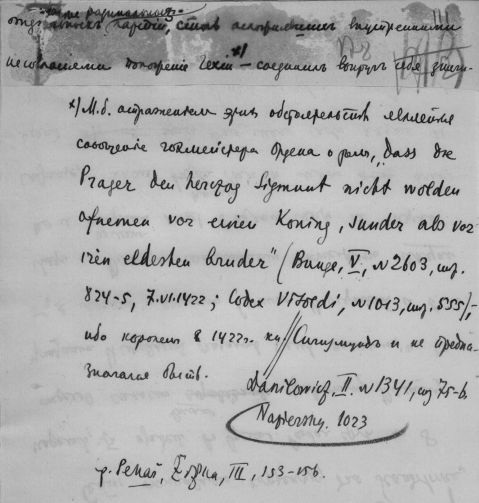 отдельных партий, стив
настроения Чехии *) — соединил вокруг себя
*) М.б. отражением этих обстоятельств является
сообщение гохмейстера Ордена о том, „dass die
Prager den herzog Sigmunt nicht wolden
ofnemen vor einen Koning, sunder als vor
iren eldesten bruder" (Bunge, V, №2603, стр.
824-5, 7.VI.1422; Codex Vitoldi, №1013, стр. 555), –
ибо королем в 1422г. кн. Сигизмунд и не предна-
значался быть.
Danilowicz, II. №1341, стр 75-6.
Napiersky. 1023
ср. Pekař, Žižka, III, 153-156.